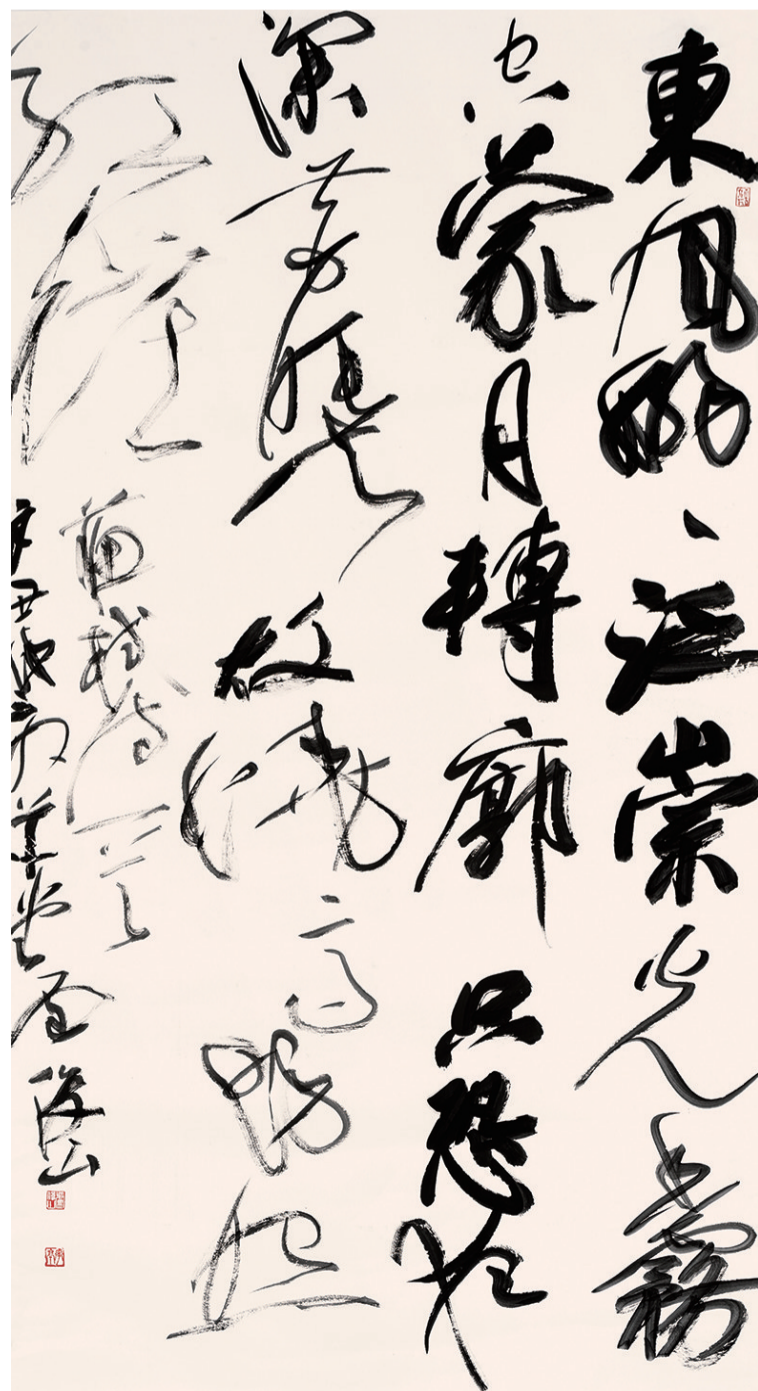 東風嫋、泛崇光香霧
空蒙月轉廊只恐夜
深花睡去故燒高燭照
紅粧
蘇軾詩一首
辛丑 草堂 山